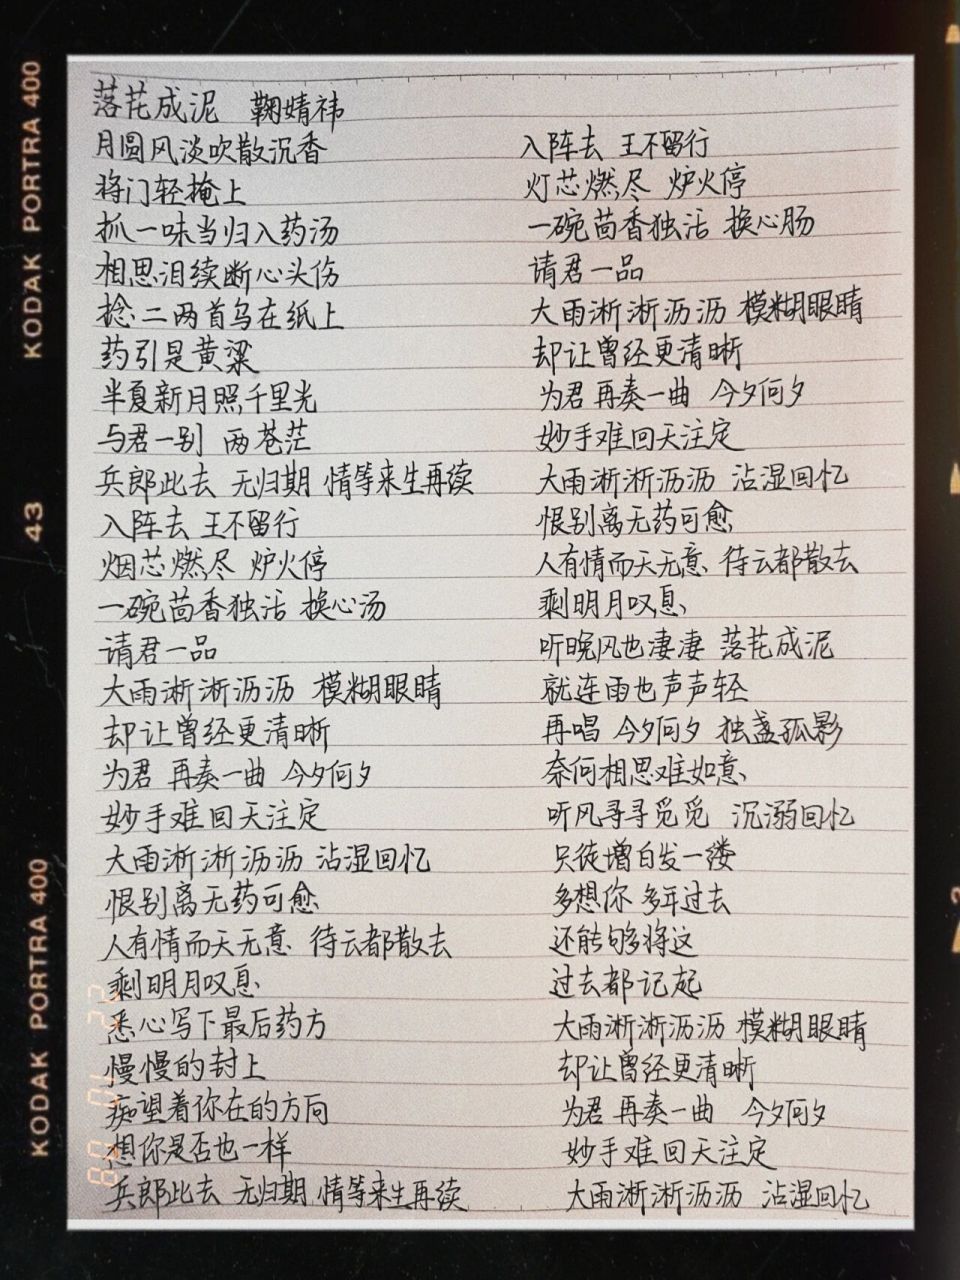 KODAK PORTRA 400
43
KODAK PORTRA 400
落花成泥 鞠婧祎
月圆风淡吹散沉香
将门轻掩上
抓一味当归入药汤
相思泪续断心头伤
捻二两首乌在纸上
药引是黄粱
半夏新月照千里光
与君一别 两苍茫
兵郎此去 无归期 情等来生再续
入阵去 王不留行
烟芯燃尽 炉火停
一碗茴香独活 换心汤
请君一品
大雨淅淅沥沥 模糊眼睛
却让曾经更清晰
为君 再奏一曲 今夕何夕
妙手难回天注定
大雨淅淅沥沥 沾湿回忆
恨别离无药可愈
人有情而天无意 待云都散去
剩明月叹息
悉心写下最后药方
慢慢的封上
痴望着你在的方向
想你是否也一样
兵郎此去 无归期 情等来生再续
入阵去 王不留行
灯芯燃尽 炉火停
一碗茴香独活 换心肠
请君一品
大雨淅淅沥沥 模糊眼睛
却让曾经更清晰
为君 再奏一曲 今夕何夕
妙手难回天注定
大雨淅淅沥沥 沾湿回忆
恨别离无药可愈
人有情而天无意 待云都散去
剩明月叹息
听晚风也凄凄 落花成泥
就连雨也声声轻
再唱 今夕何夕 独盏孤影
奈何相思难如意
听风寻寻觅觅 沉溺回忆
只徒增白发一缕
多想你 多年过去
还能够将这
过去都记起
大雨淅淅沥沥 模糊眼睛
却让曾经更清晰
为君 再奏一曲 今夕何夕
妙手难回天注定
大雨淅淅沥沥 沾湿回忆